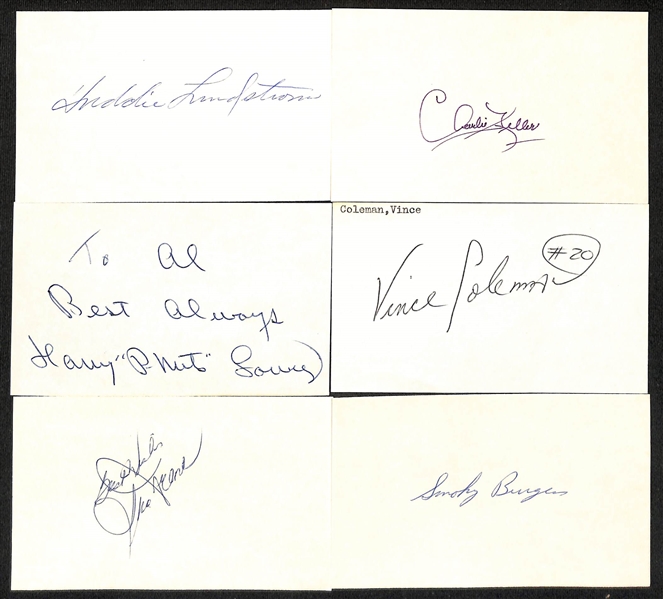 Freddie Lindstrom
Charlie Keller
To Al
Best Always
Harry "P-Nuts" Lowrey
Coleman,Vince
Vince Coleman #20
Best Wishes
Smoky Burgess